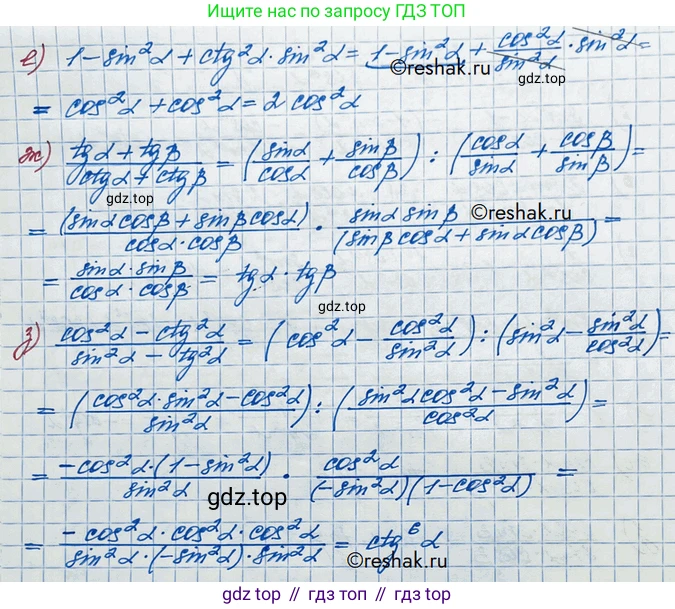 Ищите по запросу ГДЗ ТОП
е) 1 − sin²α + ctg²α · sin²α = 1 − sin²α + cos²α/sin²α · sin²α =
©reshak.ru
= cos²α + cos²α = 2 cos²α
ж) (tgα + tgβ)/(ctgα + ctgβ) = (sinα/cosα + sinβ/cosβ) : (cosα/sinα + cosβ/sinβ) =
gdz.top
= (sinα cosβ + sinβ cosα)/(cosα · cosβ) · (sinα sinβ)/(sinβ cosα + sinα cosβ) =
©reshak.ru
= (sinα · sinβ)/(cosα · cosβ) = tgα · tgβ
gdz.top
з) (cos²α − ctg²α)/(sin²α − tg²α) = (cos²α − cos²α/sin²α) : (sin²α − sin²α/cos²α) =
= ((cos²α · sin²α − cos²α)/sin²α) : ((sin²α cos²α − sin²α)/cos²α) =
= (−cos²α · (1 − sin²α))/sin²α · cos²α/((−sin²α)(1 − cos²α)) =
gdz.top
= (−cos²α · cos²α · cos²α)/(sin²α · (−sin²α) · sin²α) = ctg⁶α
©reshak.ru
gdz top // гдз топ // gdz.top